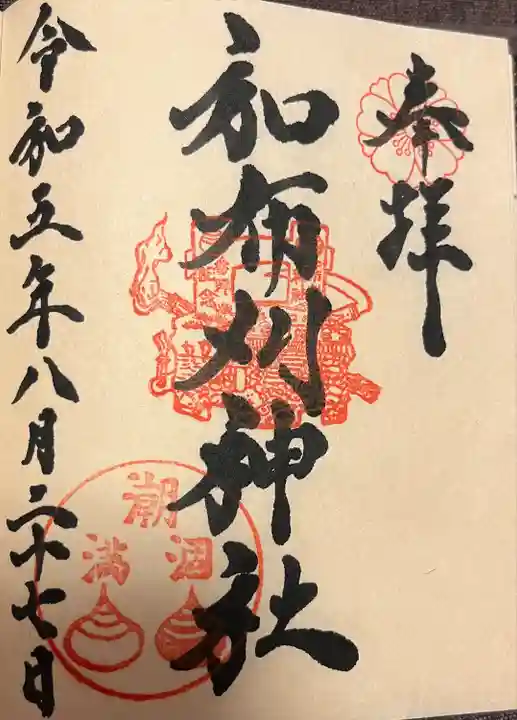 奉拝
和布刈神社
令和五年八月二十七日
潮
満 涸